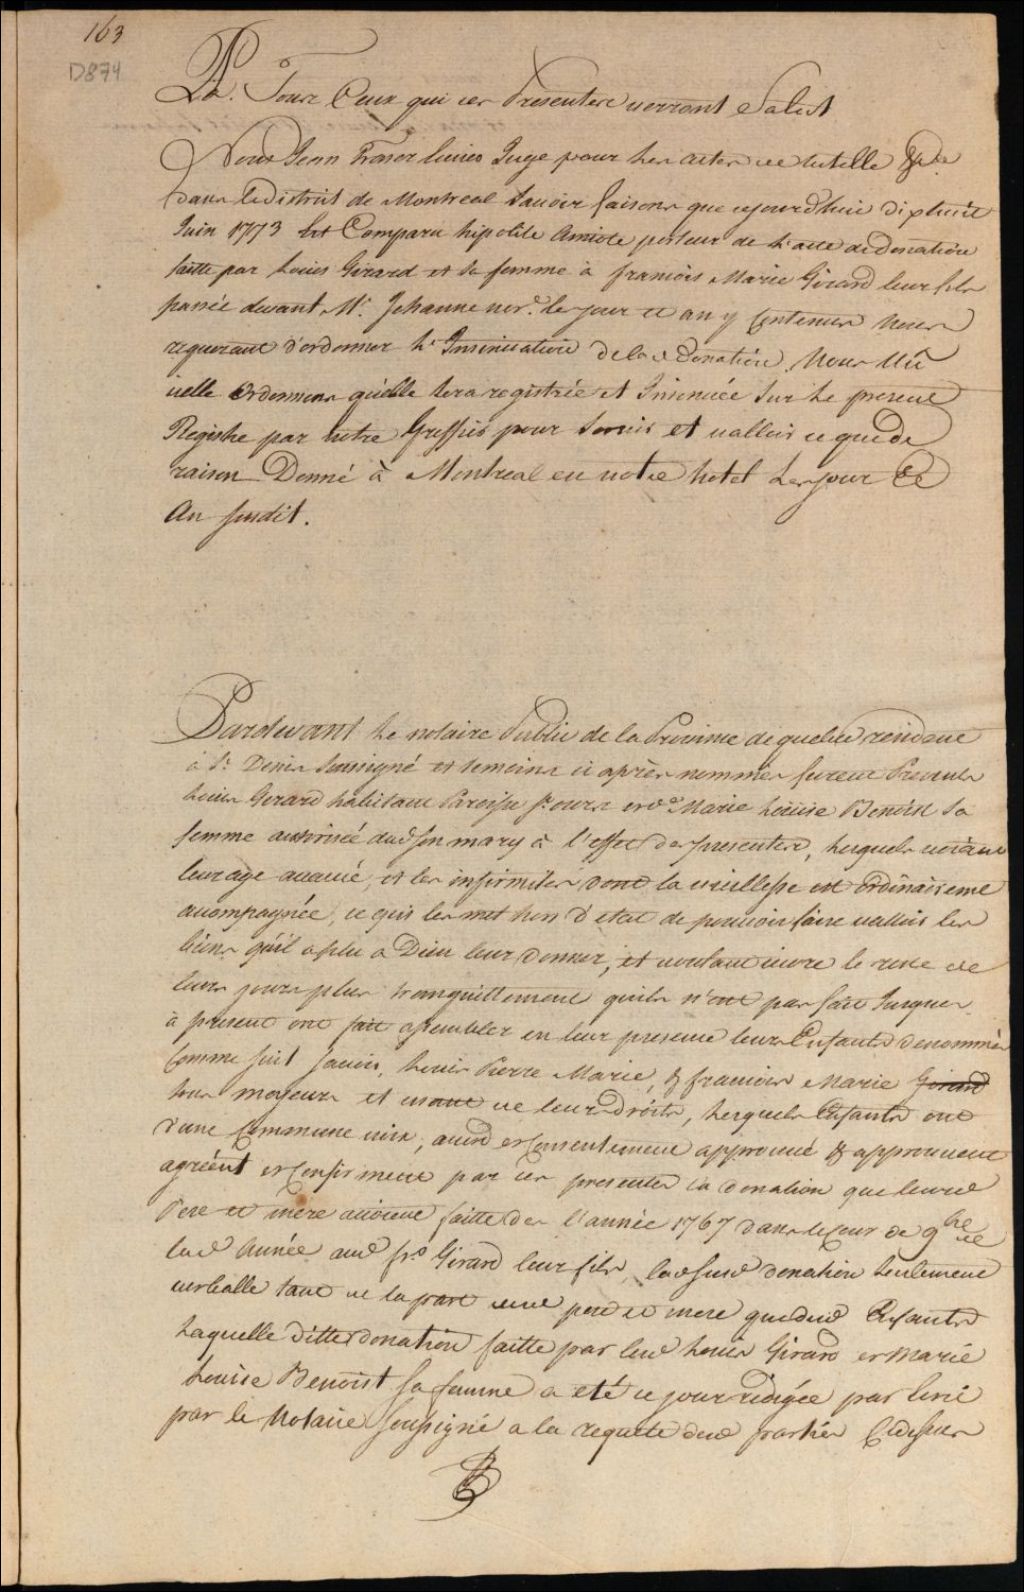 163
D874
A Tous Ceux qui ces Presentes verront Salut
Nous Jean Fraser Ecuier Juge pour les actes de tutelle &ca
dans le district de Montreal Savoir faisons que cejourd'huie dixhuit
Juin 1773 est Comparu hipolite Amiote porteur de l'acte de donation
faitte par Louis Girard et sa femme à francois Marie Girard leur fils
passée devant Mr. Jehanne nore. les jour et an y contenus Nous
requerant d'ordonner l'Insinuation de lad. donation, Nous Vû
icelle Ordonnons quelle sera registrée et Insinuée sur le present
Registre par notre Greffier pour servir et valloir ce que de
raison Donné à Montreal en notre hotel Les jour Et
An susdit.
Pardevant Le notaire Public de la Province de quebec residant
à St. Denis soussigné et temoins ci après nommés furent Presents
Louis Gerard habitant Paroisse St. ours et Marie Louise Benoist sa
femme authorisée dud. son mary à l'effet des presentes, lesquels voiant
leur age avancé, et les infirmités dont la vieillesse est ordinairement
accompagnée, ce qui les met hors d'etat de pouvoir faire valloir les
biens qu'il a plu a Dieu leur donner, et voulant vivre le reste de
leurs jours plus tranquillement quils n'ont pas fait Jusques
à present ont fait assembler en leur presence leurs Enfants denommés
Comme suit savoir, Louis Pierre Marie, & francois Marie Girard
tous majeurs et usant de leurs droits, lesquels Enfants ont
d'une Commune voix, accord et Consentement approuvé & approuvent
agréent et Confirment par ces presentes la donation que leursd.
Pere et mère avoient faitte des l'année 1767 dans le Cour de 9bre de
lad. Année aud. frs. Girard leur fils, lad. susd. donation seulement
verballe tant de la part desd. pere et mere que desd. Enfants
Laquelle ditte donation faitte par led. Louis Girard et Marie
Louise Benoist sa femme a eté ce jour redigée par Ecrit
par le Notaire soussigné a la requete desd. parties Cydessus